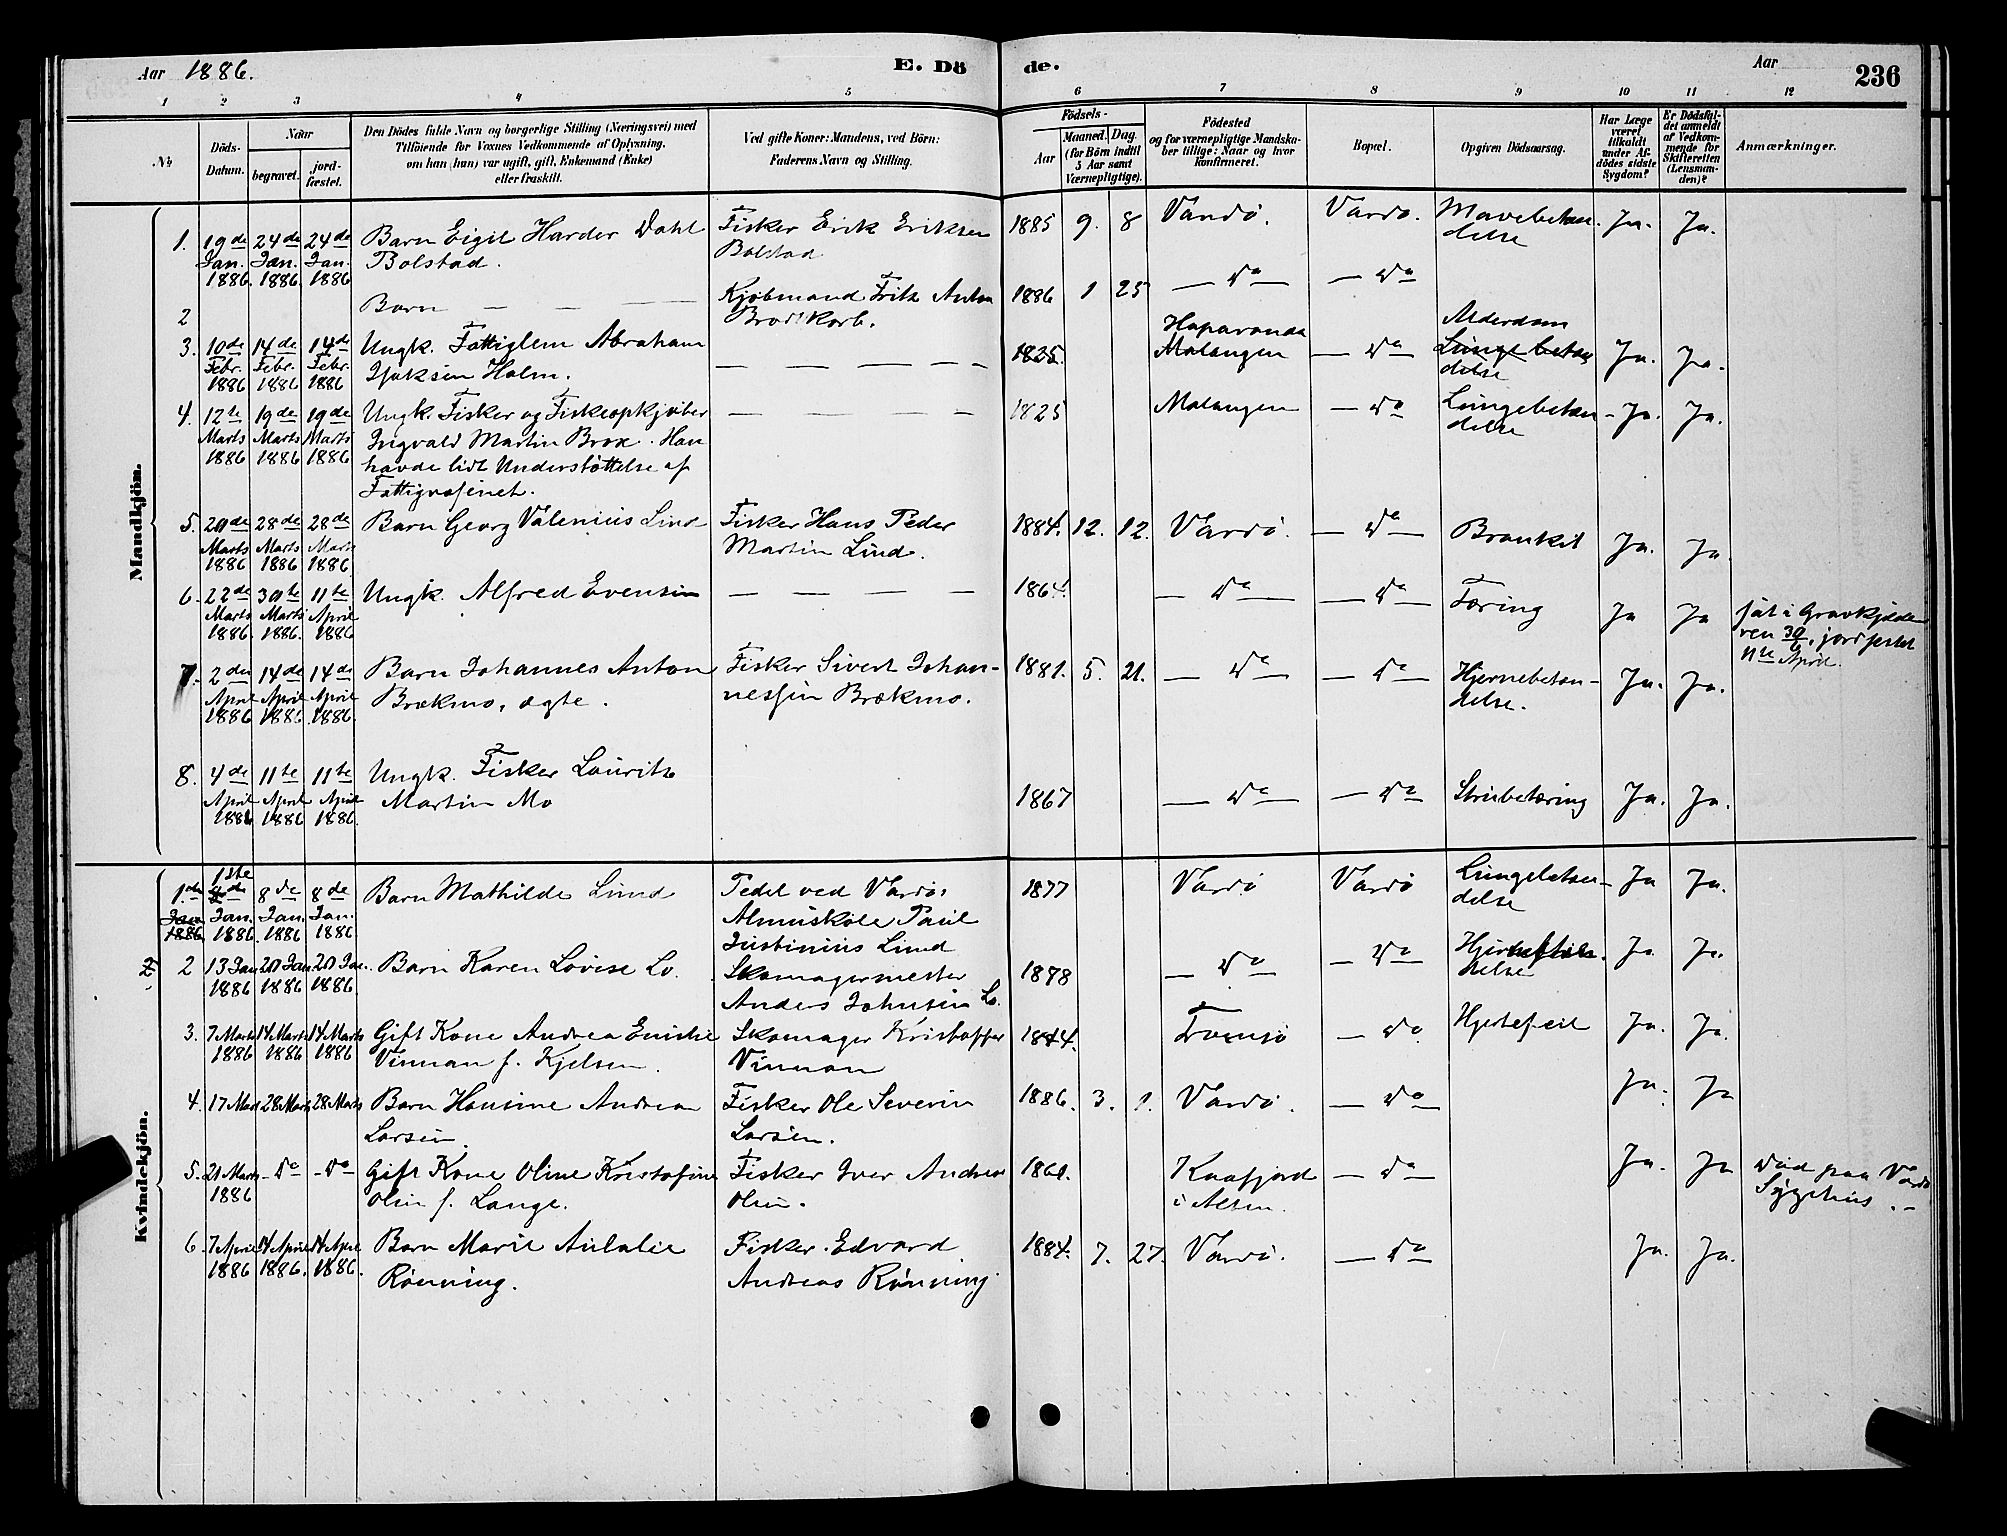 Aar 1886.
E. Dö
de.
Aar
236
1 2 3 4 5 6 7 8 9 10 11 12
No.
Döds-
Datum.
Naar
begravet.
jord-
fæstet.
Den Dödes fulde Navn og borgerlige Stilling (Næringsvei) med
Tilföiende for Voxnes Vedkommende af Oplysning,
om han (hun) var ugift, gift, Enkemand (Enke)
eller fraskilt.
Ved gifte Koner: Mandens, ved Börn:
Faderens Navn og Stilling.
Födsels-
Aar
Maaned. Dag.
(for Börn indtil
5 Aar samt
Værnepligtige).
Födested
og for værnepligtige Mandska-
ber tillige: Naar og hvor
konfirmeret.
Bopæl.
Opgiven Dödsaarsag.
Har Læge
været
tilkaldt
under Af-
dödes sidste
Sygdom?
Er Dödsfal-
det anmeldt
af Vedkom-
mende for
Skifteretten
(Lensman-
den)?
Anmærkninger.
Mandkjön.
1. 19de Jan. 1886. 24de Jan. 1886. 24de Jan. 1886
Barn Eigil Harder Dahl
Bolstad.
Fisker Erik Eriksen
Bolstad
1885 9. 8 Vardö. Vardö. Mavebetæn-
delse
Ja. Ja.
2
Barn — — —
Kjöbmand Fritz Anton
Brodtkorb.
1886 1 25 — Do — — Do
3. 10de Febr. 1886 14de Febr. 1886 14de Febr. 1886
Ungk. Fattiglem Abraham
Isaksen Holm.
— — — — —
1825. Haparanda
Malangen — Do — Alderdom
Lungebetæn
delse
Ja. Ja.
4. 12te Marts 1886 19de Marts 1886 19de Marts 1886
Ungk. Fisker og Fiskeopkjöber
Ingvald Martin Brox. Han
havde lidt Understöttelse af
Fattigvæsenet.
— — — —
1825 Malangen — Do Lungebetæn-
delse
Ja. Ja.
5. 20de Marts 1886 28de Marts 1886 28de Marts 1886
Barn Georg Valenius Lind
Fisker Hans Peder
Martin Lind.
1884. 12. 12. Vardö. — Do — Bronkit Ja. Ja
6. 22de Marts 1886. 30te Marts 1886. 11te April 1886
Ungk. Alfred Evensen — — — —
1864. — Do — — Do — Tæring Ja Ja
sat i Gravkjælde
ren 30/3, jordfæstet
11te April.
7. 2den April 1886 14de April 1886. 14de April 1886.
Barn Johannes Anton
Brækmo, ægte.
Fisker Sivert Johan-
nessen Brækmo.
1881. 5. 21. — Do — — Do — Hjernebetæn-
delse.
Ja. Ja.
8. 4de April 1886 11te April 1886 11te April 1886.
Ungk. Fisker Lauritz
Martin Mo
1867 — Do — — Do — Strubetæring Ja. Ja.
Kvindekjön.
1. de Jan 1886 1ste Jan. 1886. 8de Jan. 1886 8de Jan. 1886
Barn Mathilde Lund
Pedel ved Vardö
Almuskole Paul
Justinius Lund
1877 Vardö Vardö Lungebetæn-
delse
Ja Ja.
2 13 Jan 1886 20 Jan 1886 20 Jan. 1886.
Barn Karen Lovise Lo.
Skomagermester
Anders Johnsen Lo.
1878 — Do — — Do —
delse
Ja. Ja.
3. 7 Marts 1886 14 Marts 1886 14 Marts 1886
Gift Kone Andrea Emilie
Vinman f. Kjelsen.
Skomager Kristoffer
Vinman
1844. Tromsö — Do Hjertefeil Ja. Ja.
4. 17 Mar 28 Marts 28 Marts
Barn Hansine Andrea
Larsen.
Fisker Ole Severin
Larsen.
1886. 3. 1. Vardö. — Do — Ja. Ja
5. 21 Marts 1886 - Do - Do —
Gift Kone Oline Kristofine
Olsen f. Lange.
Fisker Iver Andreas
Olsen.
1860. Kaafjord
i Alten.
— Do — Ja. Ja
Död paa Vardö
Sygehus.-
6. 7 April 1886 14 April 1886. 14 April 1886.
Barn Marie Aulalie
Rönning.
Fisker Edvard
Andreas Rönning.
1884. 7. 27. Vardö. — Do — Ja. Ja.